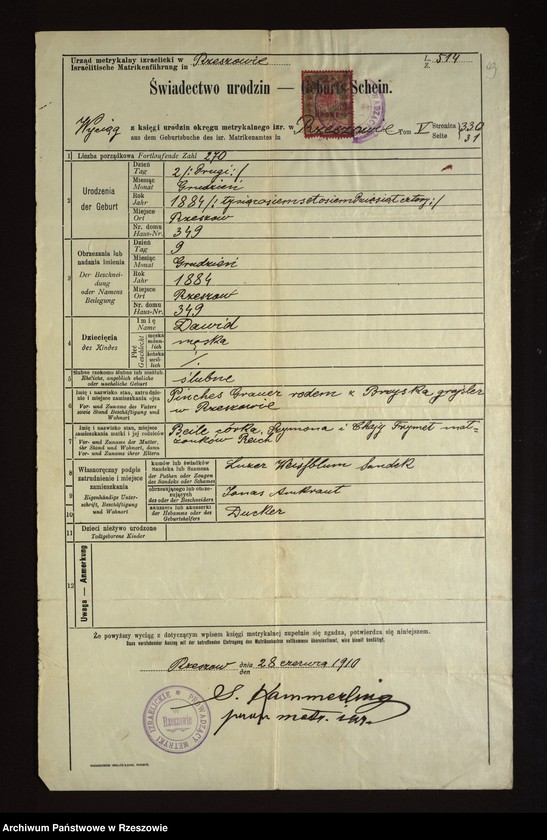 Urząd metrykalny izraelicki w Rzeszowie
Israelitische Matrikenführung in
L. 514
Z.
Świadectwo urodzin — Geburts-Schein.
Wyciąg z księgi urodzin okręgu metrykalnego izr. w Rzeszowie Tom V Stronica 330
aus dem Geburtsbuche des isr. Matrikenamtes in Seite 31
1 Liczba porządkowa Fortlaufende Zahl 270
2 Urodzenia der Geburt
Dzień Tag 2 /: Drugi :/
Miesiąc Monat Grudzień
Rok Jahr 1884 /: tysiącosiemsetosiemdziesiąt cztery :/
Miejsce Ort Rzeszów
Nr. domu Haus-Nr. 349
3 Obrzezania lub nadania imienia
Der Beschneidung oder Namens Beilegung
Dzień Tag 9
Miesiąc Monat Grudzień
Rok Jahr 1884
Miejsce Ort Rzeszow
Nr. domu Haus-Nr. 349
4 Dziecięcia des Kindes
Imię Name Dawid
Płeć Geschlecht męska männlich męska
żeńska weiblich /.
5 Ślubne rzekomo ślubne lub nieślub.
Eheliche, angeblich eheliche oder uneheliche Geburt
ślubne
6 Imię i nazwisko stan, zatrudnienie i miejsce zamieszkania ojca
Vor- und Zuname des Vaters sowie Stand Beschäftigung und Wohnort
Pinches Grauer rodem z
w Rzeszowie
7 Imię i nazwisko stan, miejsce zamieszkania matki i jej rodziców
Vor- und Zuname der Mutter, ihr Stand und Wohnort, dann Vor- und Zuname ihrer Eltern
Beile córka Szymona i Chaji Frymet mał-
żonków Reich
Własnoręczny podpis zatrudnienie i miejsce zamieszkania
Eigenhändige Unterschrift, Beschäftigung und Wohnort
8 kumów lub świadków Sandeka lub Szamesa
der Pathen oder Zeugen des Sandeks oder Schames
Weissblum Sandek
9 obrzezującego lub obrzezujących
des oder der Beschneiders
Jonas Amkraut
10 akuszera lub akuszerki
der Hebamme oder des Geburtshelfers
Ducker
11 Dzieci nieżywo urodzone
Todtgeborene Kinder
12 Uwaga — Anmerkung
Że powyższy wyciąg z dotyczącym wpisem księgi metrykalnej zupełnie się zgadza, potwierdza się niniejszem.
Dass vorstehender Auszug mit der betreffenden Eintragung des Matrikenbuches vollkommen übereinstimmt, wird hiemit bestätigt.
Rzeszow dnia 28 czerwca 1910
den
S. Kammerling
PROWADZĄCY METRYKI IZRAELICKIE
w
Rzeszowie
Archiwum Państwowe w Rzeszowie